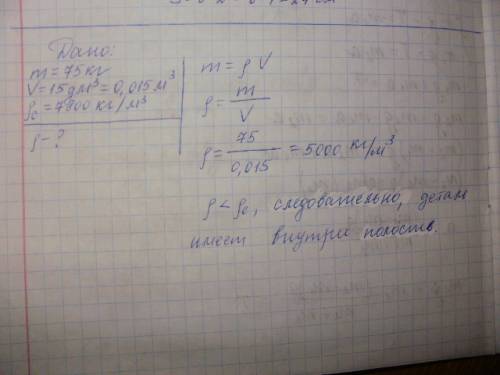 Дано:
m = 75 кг
V = 15 дм³ = 0,015 м³
ρс = 7800 кг/м³
ρ - ?
m = ρ V
ρ = m/V
ρ = 75/0,015 = 5000 кг/м³
ρ < ρс, следовательно, деталь
имеет внутри полость.